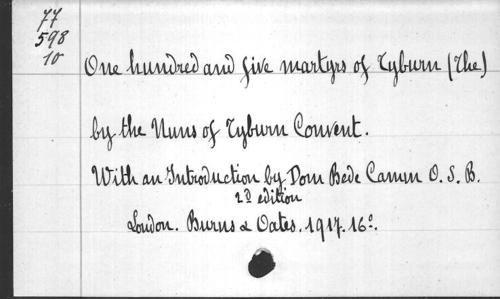 77
598
10
One hundred and five martyrs of Tyburn (The)
by the Nuns of Tyburn Convent.
With an Introduction by Dom Bede Camm O. S. B.
2d edition
London. Burns & Oates. 1917. 16o.